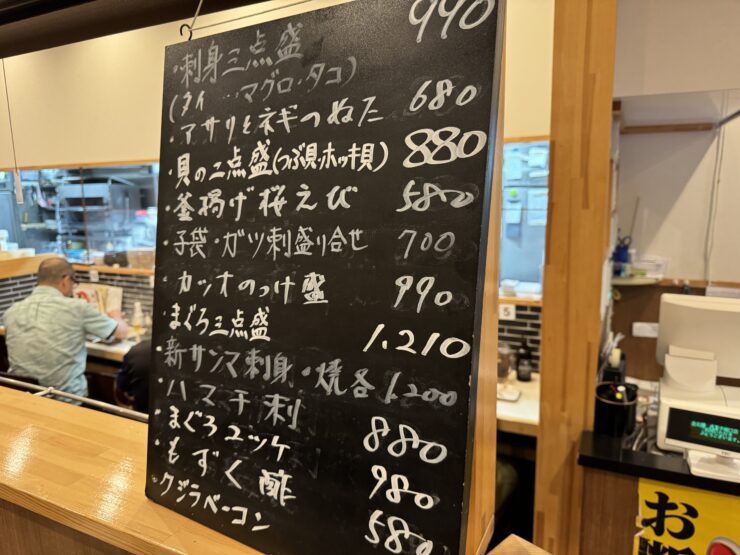 ・刺身三点盛 990
(タイ・・マグロ・タコ)
・アサリとネギのぬた 680
・貝の二点盛(つぶ貝・ホッキ貝) 880
・釜揚げ桜えび 580
・子袋・ガツ刺盛り合せ 700
・カツオのっけ盛 990
・まぐろ三点盛 1,210
・新サンマ刺身・焼各1,200
・ハマチ刺 880
・まぐろユッケ 980
・もずく酢 580
クジラベーコン
お